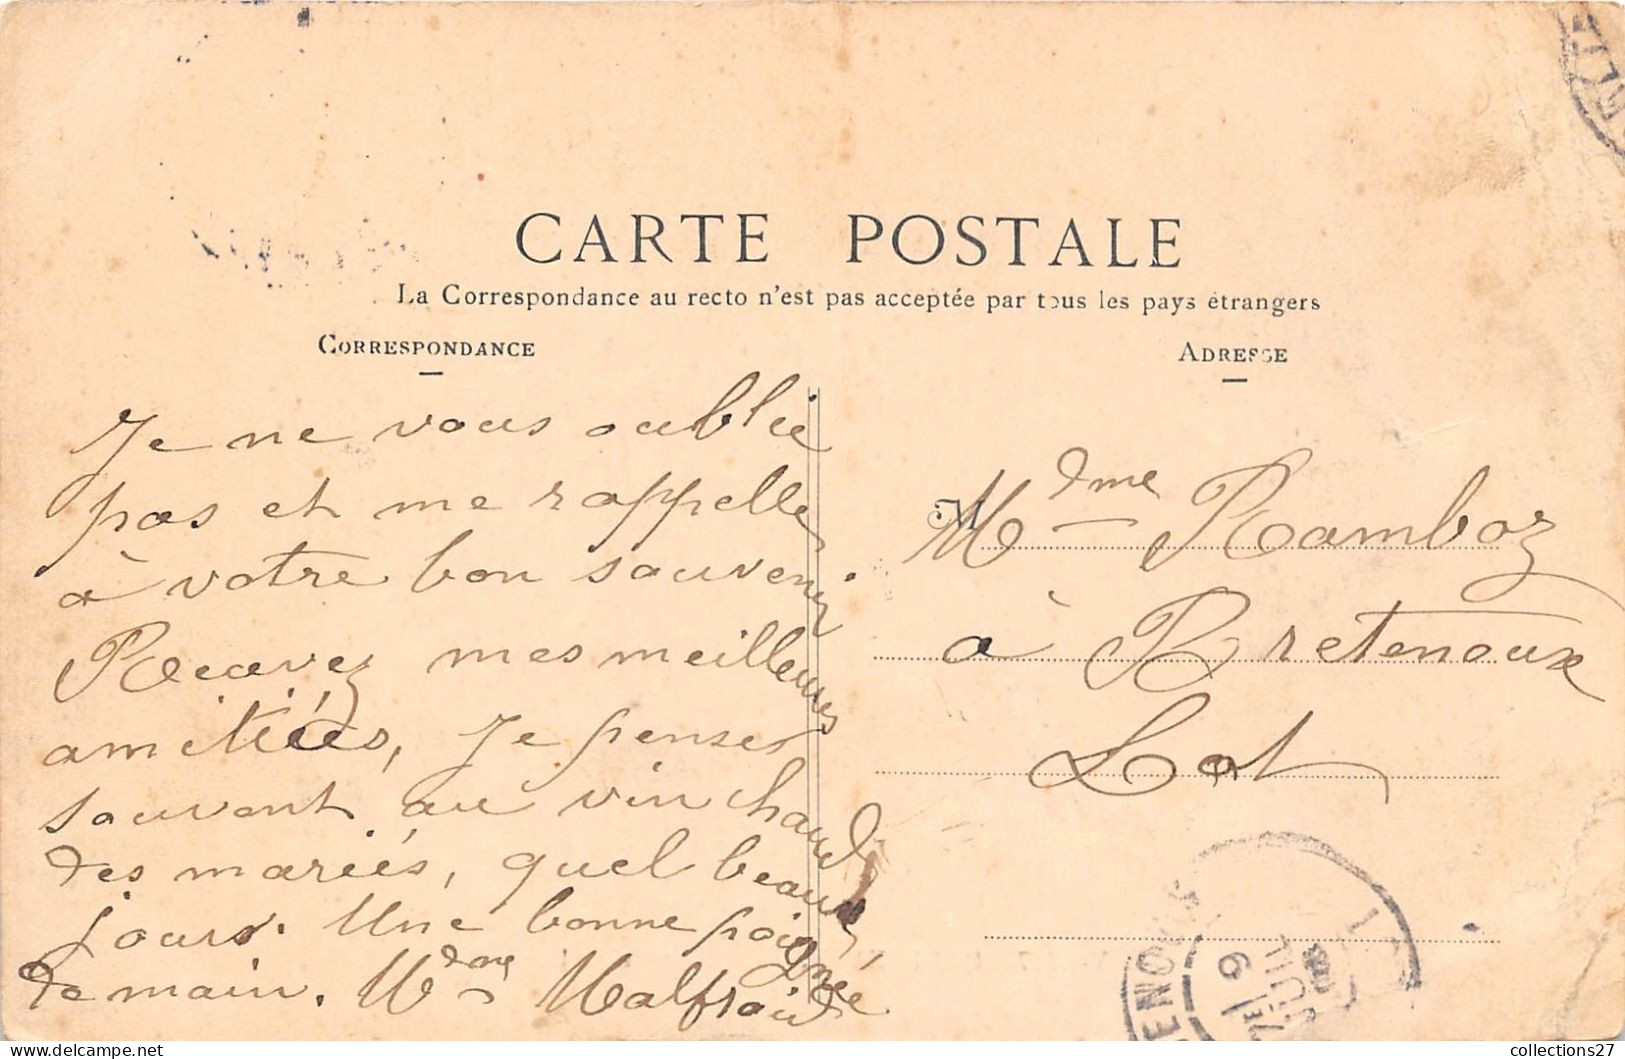 CARTE POSTALE
La Correspondance au recto n'est pas acceptée par tous les pays étrangers
CORRESPONDANCE
ADRESSE
Je ne vous oublie
pas et me rappelle
à votre bon souvenir.
Recevez mes meilleures
amitiées, Je penses
souvent au vin chaud
des mariés, quel beaux
jours. Une bonne poignée
de main. Mdme
M
Mdme Ramboz
à Bretenoux
Lot
6
JUIL
collections27